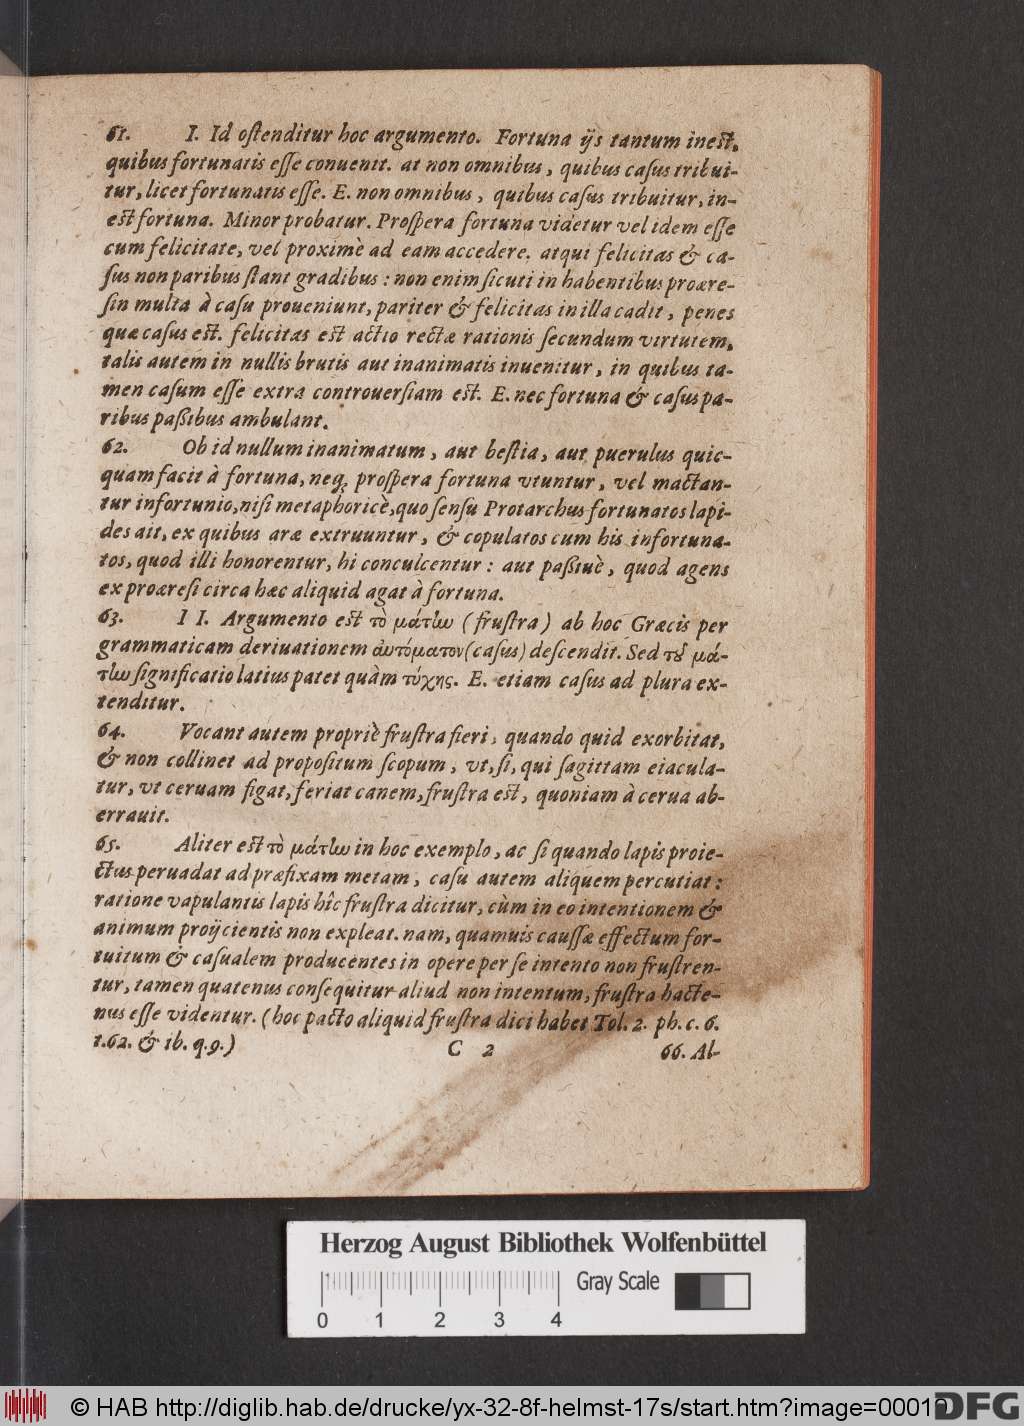 61. I. Id oſtenditur hoc argumento. Fortuna ijs tantum ineſt,
quibus fortunatis eſſe conuenit. at non omnibus, quibus caſus tribui-
tur, licet fortunatis eſſe. E. non omnibus, quibus caſus tribuitur, in-
eſt fortuna. Minor probatur. Proſpera fortuna videtur vel idem eſſe
cum felicitate, vel proximè ad eam accedere. atqui felicitas & ca-
ſus non paribus ſtant gradibus: non enim ſicuti in habentibus proære-
ſin multa à caſu proueniunt, pariter & felicitas in illa cadit, penes
quæ caſus eſt. felicitas eſt actio rectæ rationis ſecundum virtutem,
talis autem in nullis brutis aut inanimatis inuenitur, in quibus ta-
men caſum eſſe extra controuerſiam eſt. E. nec fortuna & caſus pa-
ribus paßibus ambulant.
62. Ob id nullum inanimatum, aut beſtia, aut puerulus quic-
quam facit à fortuna, neq; proſpera fortuna vtuntur, vel mactan-
tur infortunio, niſi metaphoricè, quo ſenſu Protarchus fortunatos lapi-
des ait, ex quibus aræ extruuntur, & copulatos cum his infortuna-
tos, quod illi honorentur, hi conculcentur: aut paßiuè, quod agens
ex proæreſi circa hæc aliquid agat à fortuna.
63. II. Argumento eſt τὸ μάτην (fruſtra) ab hoc Græcis per
grammaticam deriuationem αὐτόματον (caſus) deſcendit. Sed τοῦ μά-
την ſignificatio latius patet quàm τύχης. E. etiam caſus ad plura ex-
tenditur.
64. Vocant autem propriè fruſtra fieri, quando quid exorbitat,
& non collinet ad propoſitum ſcopum, vt, ſi, qui ſagittam eiacula-
tur, vt ceruam figat, feriat canem, fruſtra eſt, quoniam à cerua ab-
errauit.
65. Aliter eſt τὸ μάτην in hoc exemplo, ac ſi quando lapis proie-
ctus peruadat ad præfixam metam, caſu autem aliquem percutiat:
ratione vapulantis lapis hîc fruſtra dicitur, cùm in eo intentionem &
animum proijcientis non expleat. nam, quamuis cauſſæ effectum for-
tuitum & caſualem producentes in opere per ſe intento non fruſtren-
tur, tamen quatenus conſequitur aliud non intentum, fruſtra hacte-
nus eſſe videntur. (hoc pacto aliquid fruſtra dici habet Tol. 2. ph. c. 6.
t. 62. & ib. q. 9.)
C 2 66. Al-
Herzog August Bibliothek Wolfenbüttel
Gray Scale
0 1 2 3 4
© HAB http://diglib.hab.de/drucke/yx-32-8f-helmst-17s/start.htm?image=00019
DFG